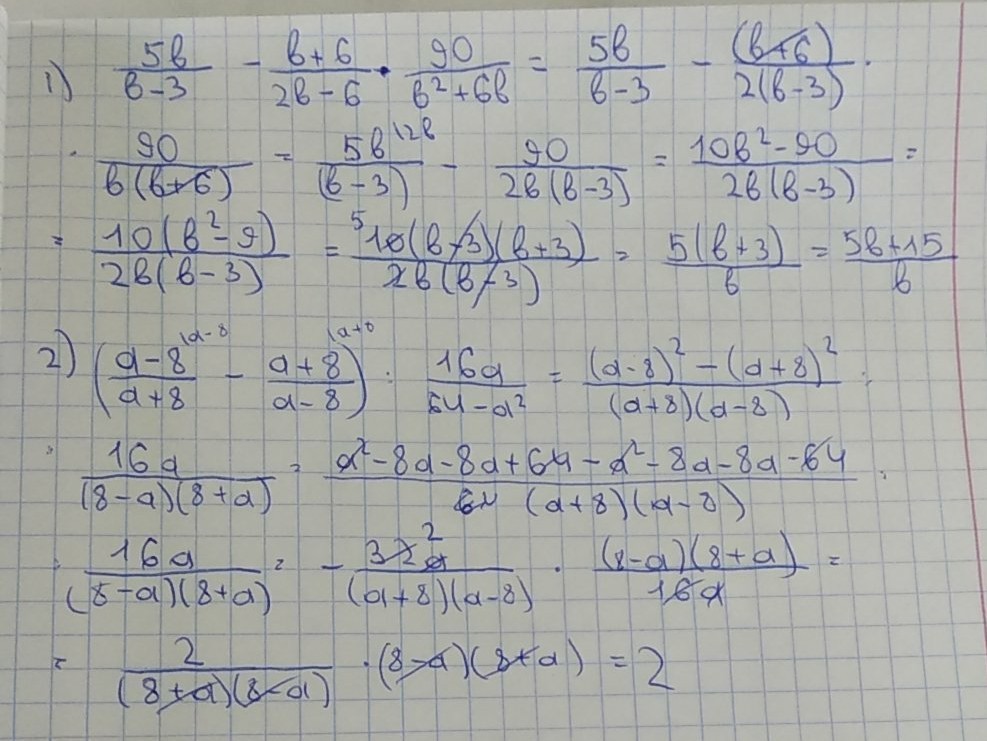 1) 5b/(b-3) - (b+6)/(2b-6) · 90/(b²+6b) = 5b/(b-3) - (b+6)/(2(b-3)) ·
· 90/(b(b+6)) = 5b^{\2b}/(b-3) - 90/(2b(b-3)) = (10b²-90)/(2b(b-3)) =
= 10(b²-9)/(2b(b-3)) = ⁵10(b-3)(b+3)/(2b(b-3)) = 5(b+3)/b = (5b+15)/b
2) ((a-8)^{\a-8}/(a+8) - (a+8)^{\a+8}/(a-8)) : 16a/(64-a²) = ((a-8)²-(a+8)²)/((a+8)(a-8)) :
: 16a/((8-a)(8+a)) = (a²-8a-8a+64-a²-8a-8a-64)/((a+8)(a-8)) :
: 16a/((8-a)(8+a)) = - 32²a/((a+8)(a-8)) · (8-a)(8+a)/16a =
= 2/((8+a)(8-a)) · (8-a)(8+a) = 2